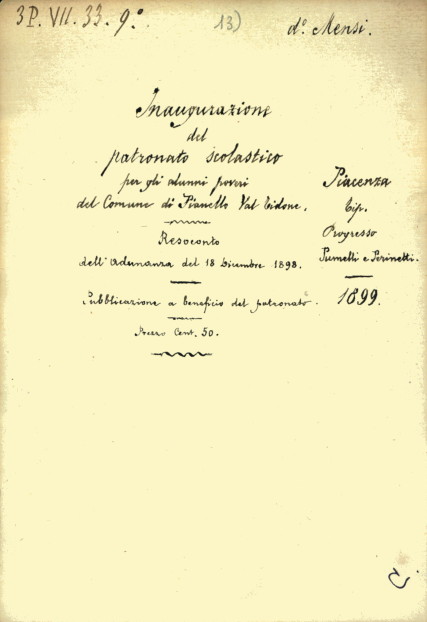 3P. VII. 33. 9º
13)
dº. Mensi.
Inaugurazione
del
patronato scolastico
per gli alunni poveri
del Comune di Pianello Val Tidone.
Resoconto
dell'Adunanza del 18 Dicembre 1898.
Pubblicazione a beneficio del patronato.
Prezzo Cent. 50.
Piacenza
Tip.
Progresso
Pumelli e Perinetti.
1899.